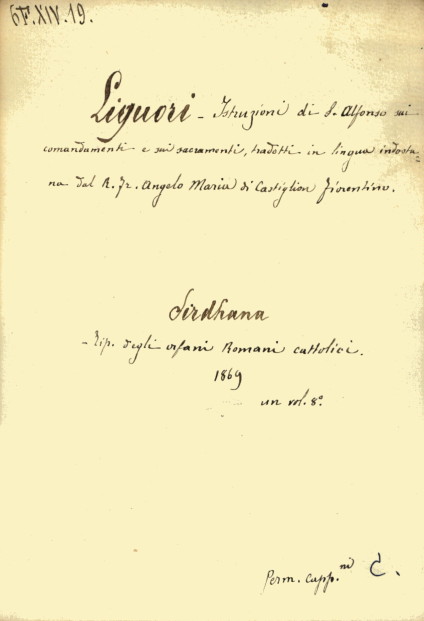 6F.XIV.19.
Liguori - Istruzioni di S. Alfonso sui
comandamenti e sui sacramenti, tradotti in lingua indosta=
na dal R. Fr. Angelo Maria di Castiglion Fiorentino.
Sirdhana
- Tip. degli orfani Romani cattolici.
1869
un vol. 8°.
Perm. Capp.ni C.